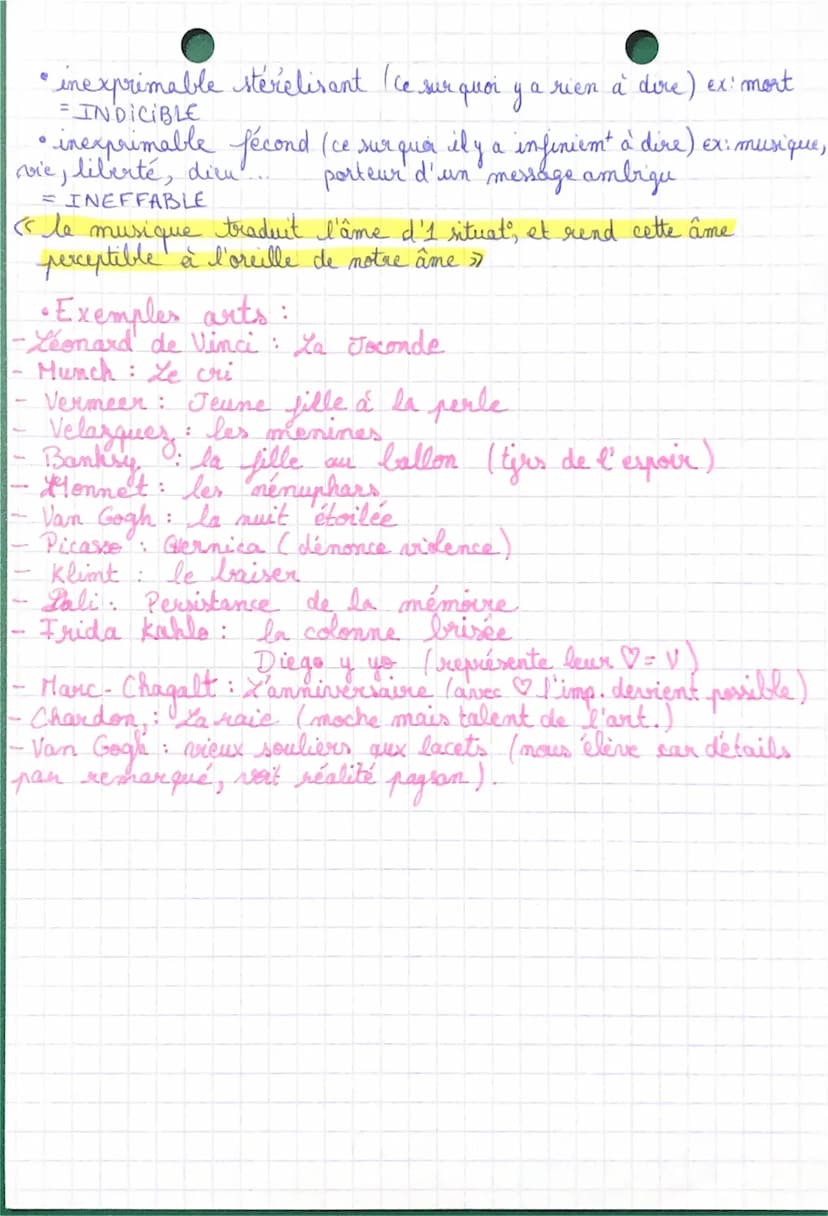 • inexprimable stérélisant (ce sur quoi y a rien à dire) ex: mort
= INDICIBLE
• inexprimable fécond (ce sur quoi il y a infiniemt à dire) ex: musique,
vie, liberté, dieu ... porteur d'un message ambigu
= INEFFABLE
« la musique traduit l'âme d'1 situat°, et rend cette âme
perceptible à l'oreille de notre âme »
• Exemples arts :
- Léonard de Vinci : La Joconde
- Munch : Le cri
- Vermeer : Jeune fille à la perle
- Velazquez : les menines
- Banksy : la fille au ballon (tjrs de l'espoir)
- Monnet : les nénuphars
- Van Gogh : la nuit étoilée
- Picasso : Gernica (dénonce violence)
- Klimt : le baiser
- Dali : Persistance de la mémoire
- Frida Kahlo : la colonne brisée
Diego y yo (représente leur ♡ = V)
- Marc-Chagalt : L'anniversaire (avec ♡ l'imp. devient possible)
- Chardon : La raie (moche mais talent de l'art.)
- Van Gogh : vieux souliers aux lacets (nous élève car détails
pas remarqué, voit réalité paysan).